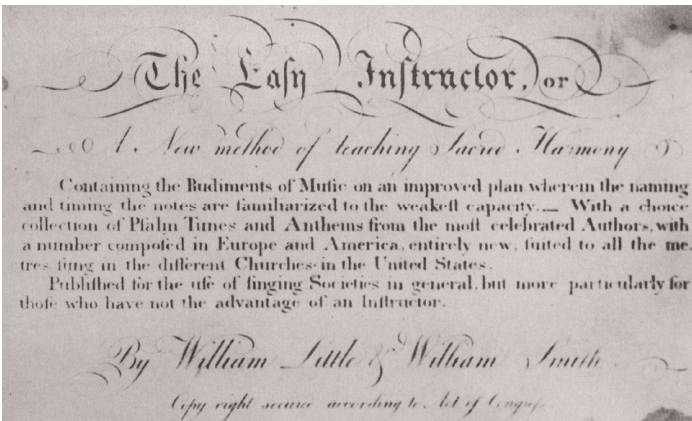 The Eaſy Inſtructor, or
A New method of teaching Sacred Harmony
Containing the Rudiments of Muſic on an improved plan wherein the naming
and timing the notes are familiarized to the weakeſt capacity. — With a choice
collection of Pſalm Tunes and Anthems from the moſt celebrated Authors, with
a number compoſed in Europe and America, entirely new, ſuited to all the me-
tres ſung in the different Churches in the United States.
Publiſhed for the uſe of ſinging Societies in general, but more particularly for
thoſe who have not the advantage of an Inſtructor.
By William Little & William Smith
Copy right secured according to Act of Congreſs